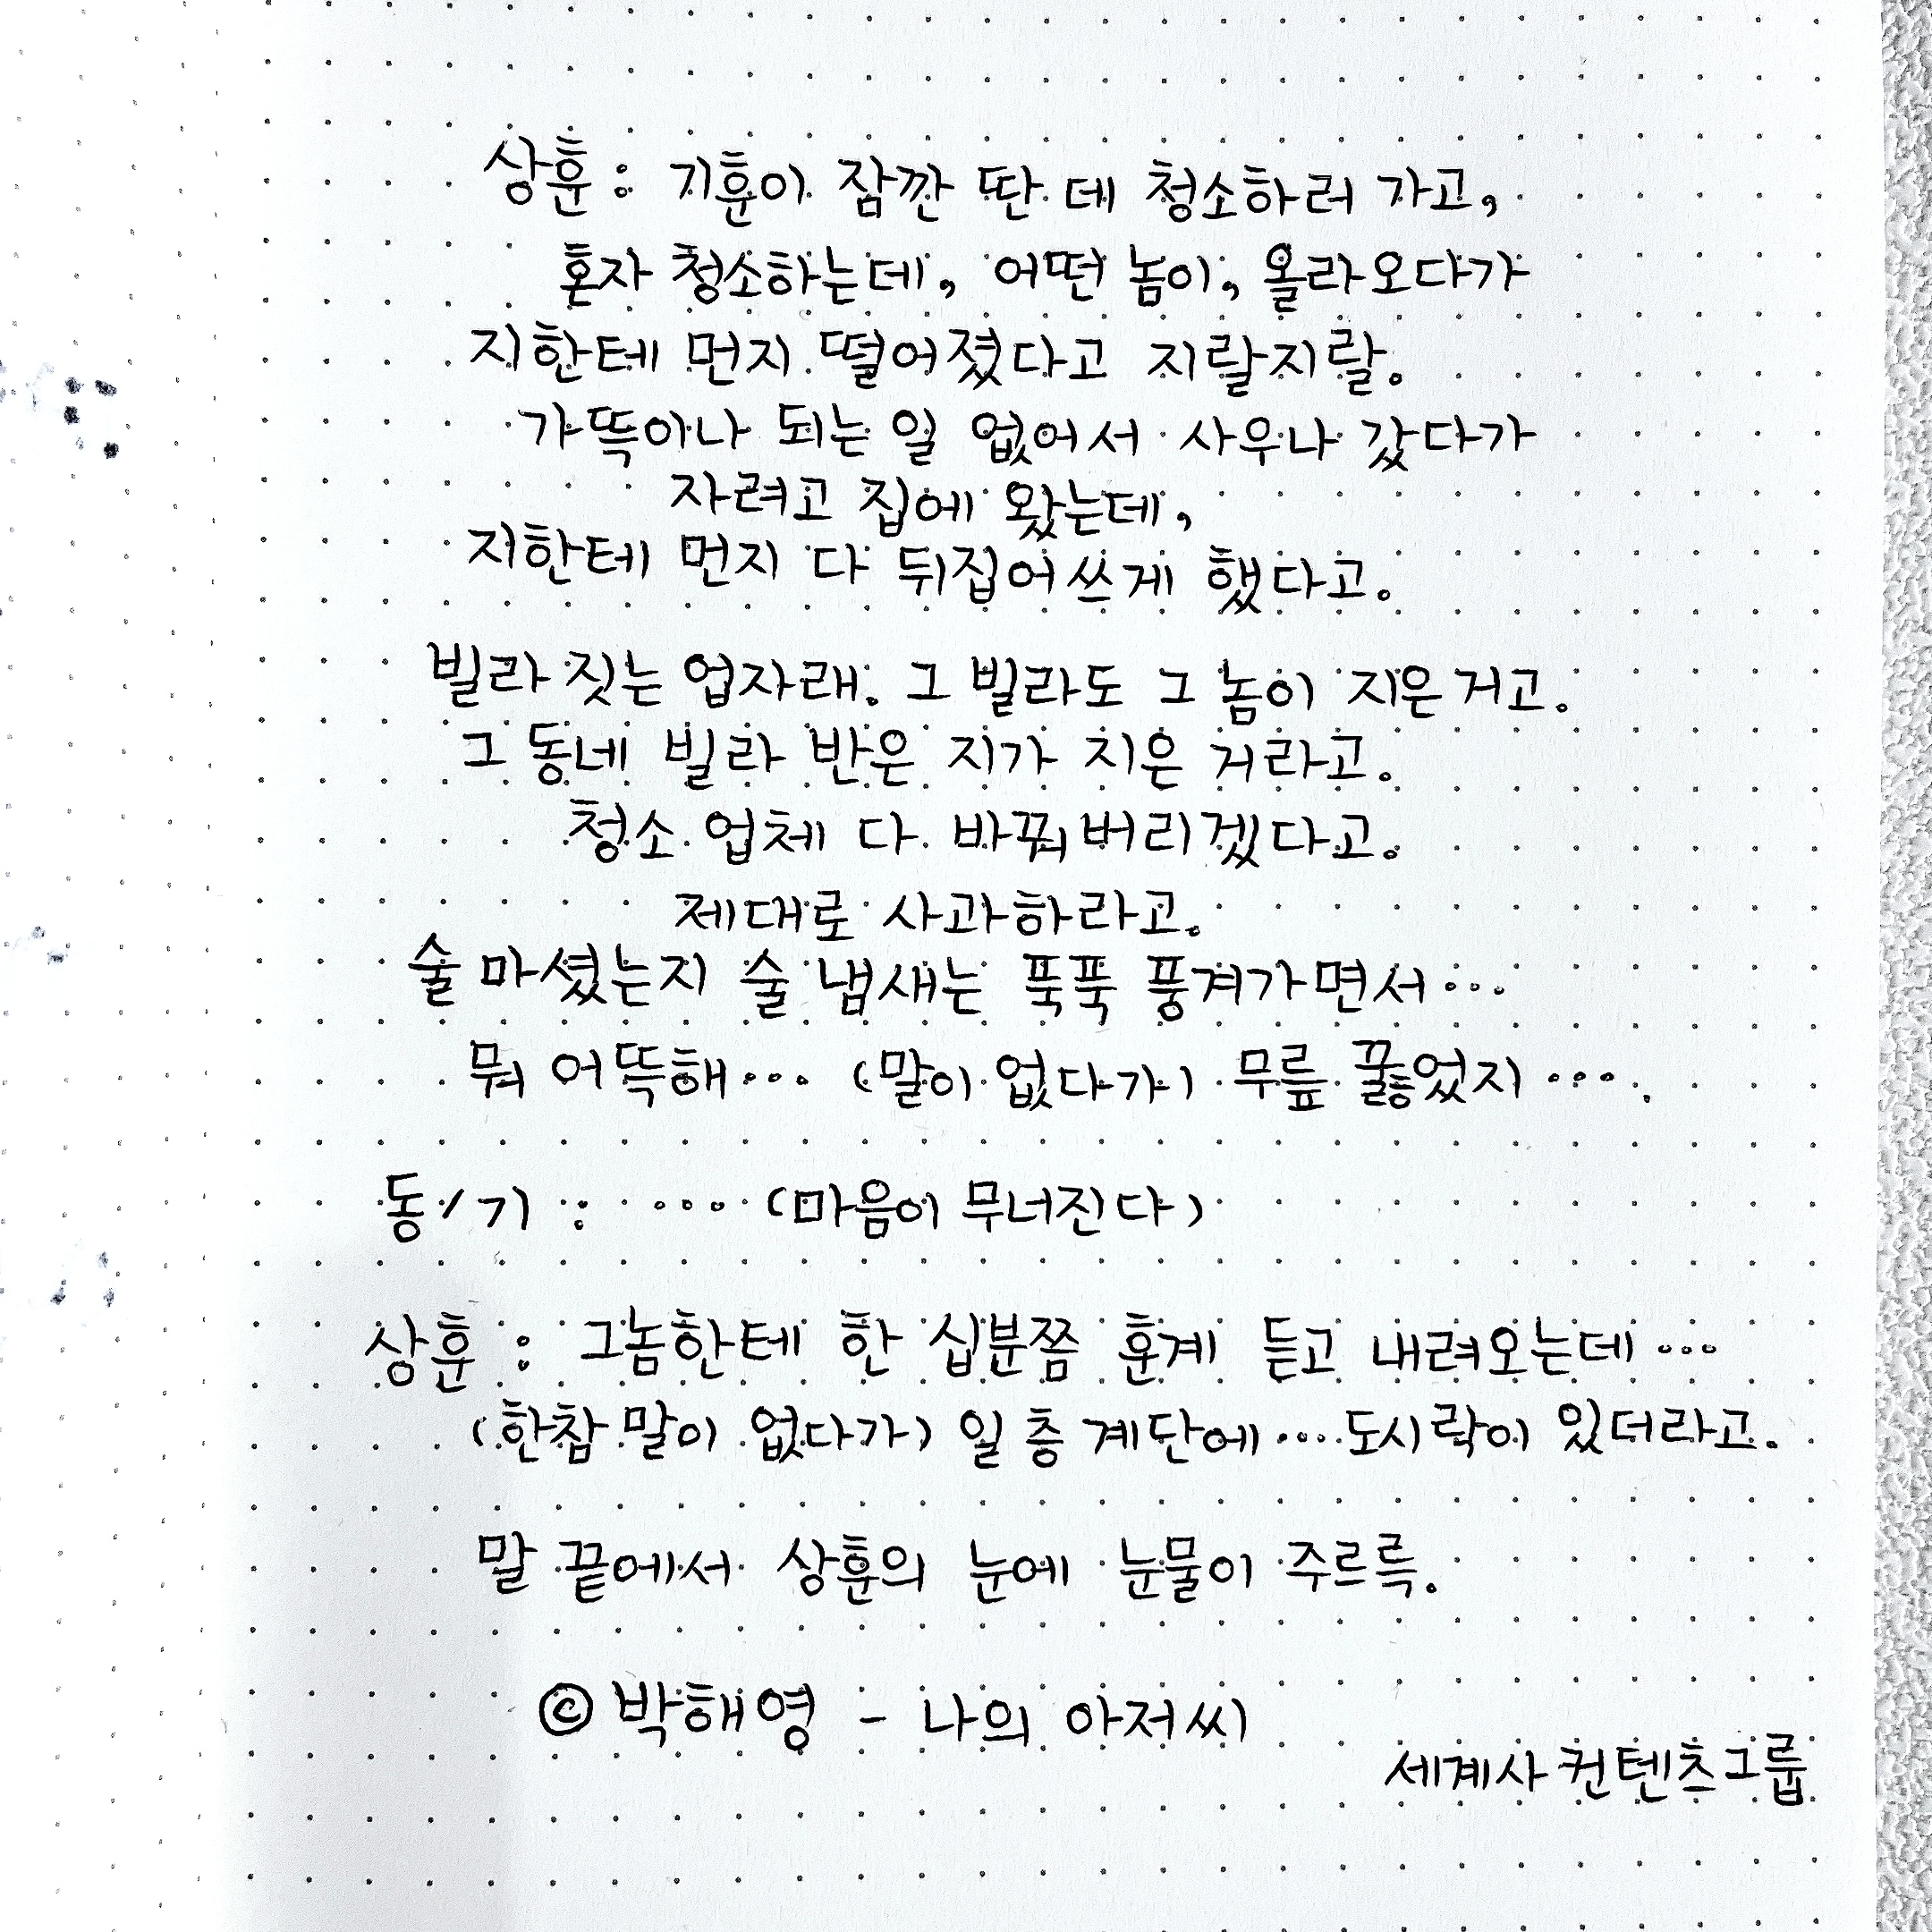 상훈 : 기훈이 잠깐 딴 데 청소하러 가고,
혼자 청소하는데, 어떤 놈이, 올라오다가
지한테 먼지 떨어졌다고 지랄지랄.
가뜩이나 되는 일 없어서 사우나 갔다가
자려고 집에 왔는데,
지한테 먼지 다 뒤집어쓰게 했다고.
빌라 짓는 업자래. 그 빌라도 그 놈이 지은 거고.
그 동네 빌라 반은 지가 지은 거라고.
청소 업체 다 바꿔버리겠다고.
제대로 사과하라고.
술 마셨는지 술 냄새는 푹푹 풍겨가면서…
뭐 어뜩해… (말이 없다가) 무릎 꿇었지….
동/기 : …. (마음이 무너진다)
상훈 : 그놈한테 한 십분쯤 훈계 듣고 내려오는데…
(한참 말이 없다가) 일 층 계단에…. 도시락이 있더라고.
말 끝에서 상훈의 눈에 눈물이 주르륵.
© 박해영 - 나의 아저씨
세계사컨텐츠그룹